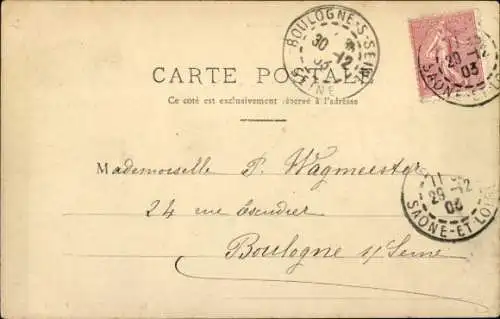 BOULOGNE-S-SEINE
30 -12 03
SEINE
29 -12 03
SAONE-ET-LOIRE
CARTE POSTALE
Ce côté est exclusivement réservé à l'adresse
Mademoiselle P. Wagmeester
24 rue Escudier
Boulogne s/Seine
29 -12 03
SAONE-ET-LOIRE